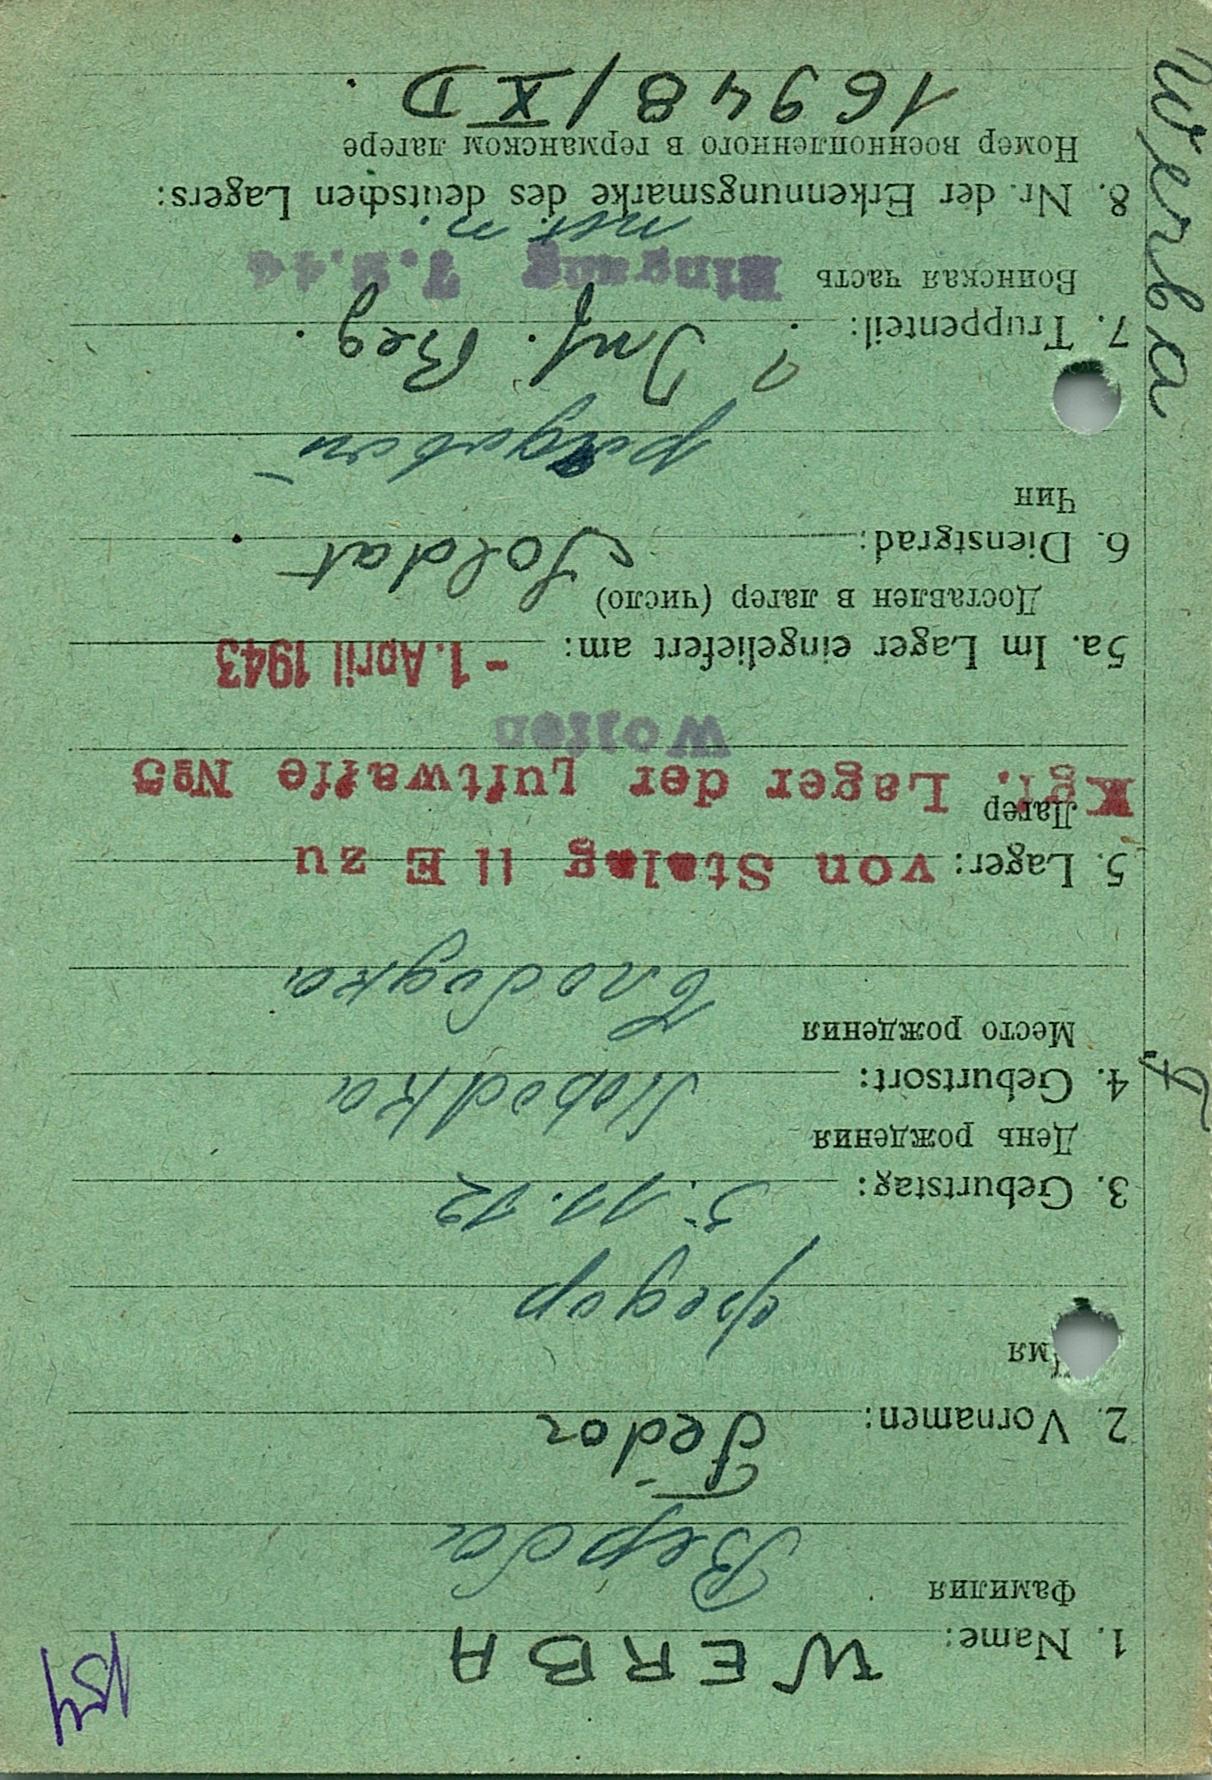 154
1. Name: WERBA
Фамилия Верба
2. Vornamen: Fedor
Имя Федор
3. Geburtstag: 5.11.12
День рождения
4. Geburtsort: Slobodka
Место рождения Слободка
5. Lager: von Stalag II E zu
Лагер Kgf. Lager der Luftwaffe №5
Wolfen
5a. Im Lager eingeliefert am: -1. April 1943
Доставлен в лагер (число)
6. Dienstgrad: Soldat
Чин рядовой
7. Truppenteil: ? Inf. Reg.
Воинская часть Eingang 7.2.44
8. Nr. der Erkennungsmarke des deutschen Lagers:
Номер военнопленного в германском лагере
16948/X D
Werba
F.